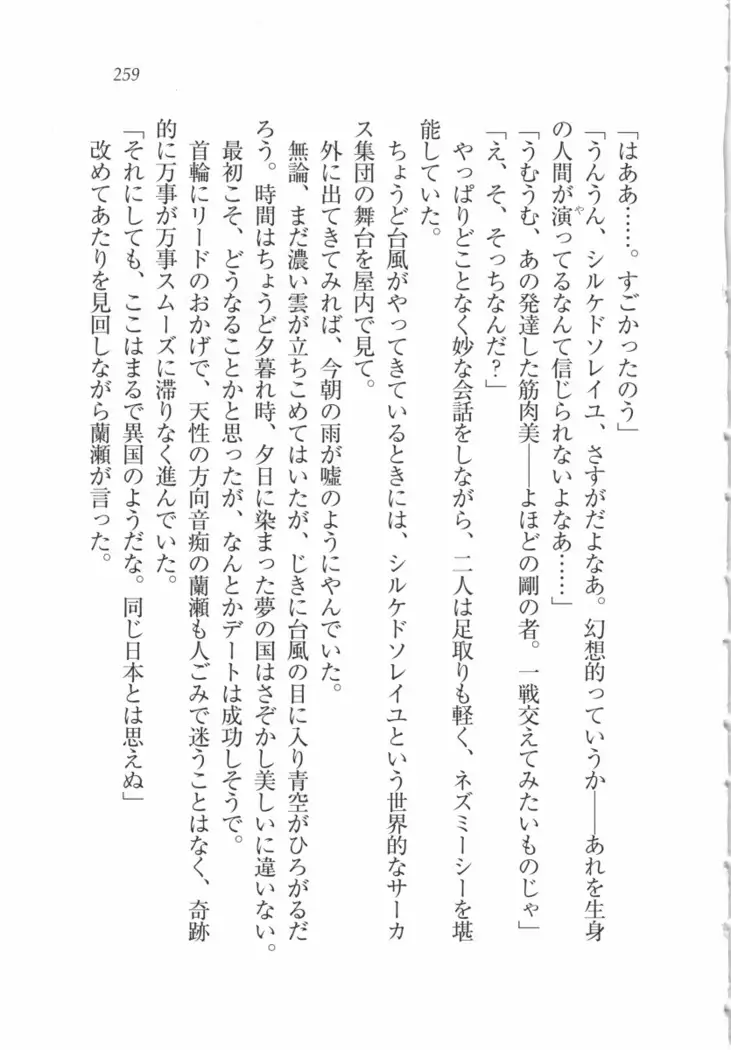 259
「はああ……。すごかったのう」
「うんうん、シルケドソレイユ、さすがだよなあ。幻想的っていうか――あれを生身
の人間が演ってるなんて信じられないよなあ……」
「うむうむ、あの発達した筋肉美――よほどの剛の者。一戦交えてみたいものじゃ」
「え、そ、そっちなんだ？」
やっぱりどことなく妙な会話をしながら、二人は足取りも軽く、ネズミーシーを堪
能していた。
ちょうど台風がやってきているときには、シルケドソレイユという世界的なサーカ
ス集団の舞台を屋内で見て。
外に出てきてみれば、今朝の雨が嘘のようにやんでいた。
無論、まだ濃い雲が立ちこめてはいたが、じきに台風の目に入り青空がひろがるだ
ろう。時間はちょうど夕暮れ時、夕日に染まった夢の国はさぞかし美しいに違いない。
最初こそ、どうなることかと思ったが、なんとかデートは成功しそうで。
首輪にリードのおかげで、天性の方向音痴の蘭瀬も人ごみで迷うことはなく、奇跡
的に万事が万事スムーズに滞りなく進んでいた。
「それにしても、ここはまるで異国のようだな。同じ日本とは思えぬ」
改めてあたりを見回しながら蘭瀬が言った。